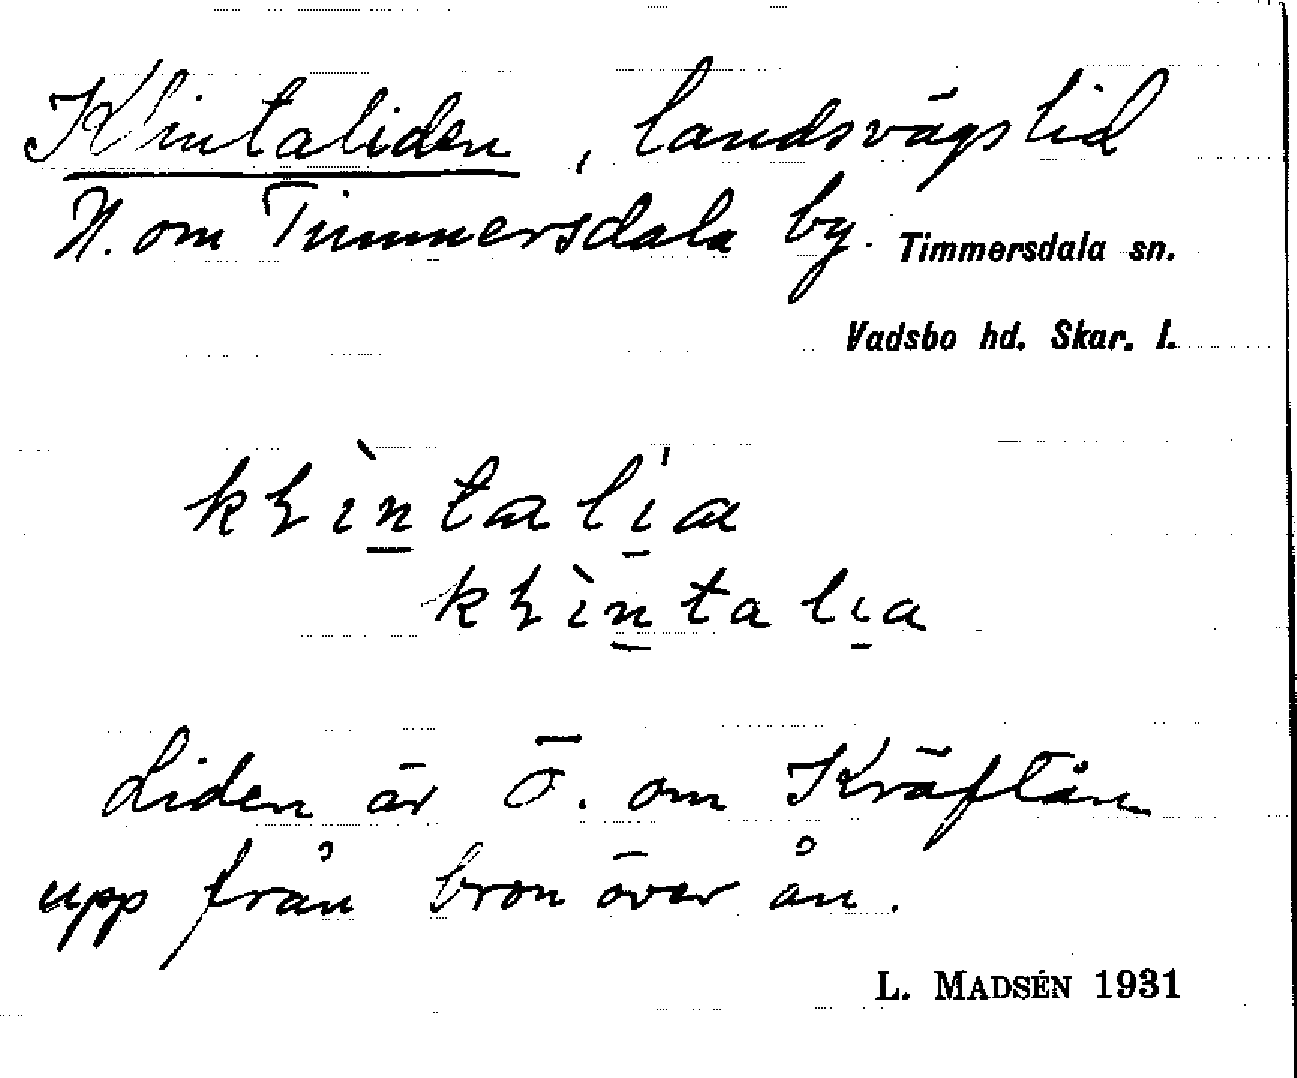 Klintaliden, landsvägslid
N. om Timmersdala by. Timmersdala sn.
Vadsbo hd. Skar. l.
kⱡìn̲talí̲a
kⱡìn̲tali̲a
Liden är Ö. om Kräftån
upp från bron över ån.
L. MADSÉN 1931